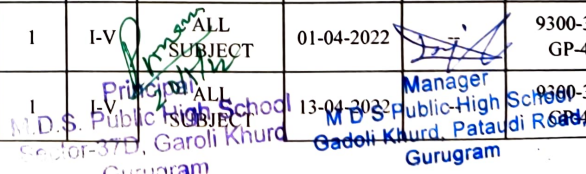 1 I-V ALL SUBJECT 01-04-2022 -- 9300-3
GP-4
1 I-V ALL SUBJECT 13-04-2022 9300-3
GP-4
Principal
M.D.S. Public High School
Sector-37D, Garoli Khurd
Gurugram
Manager
M D S Public High School
Gadoli Khurd, Pataudi Road
Gurugram